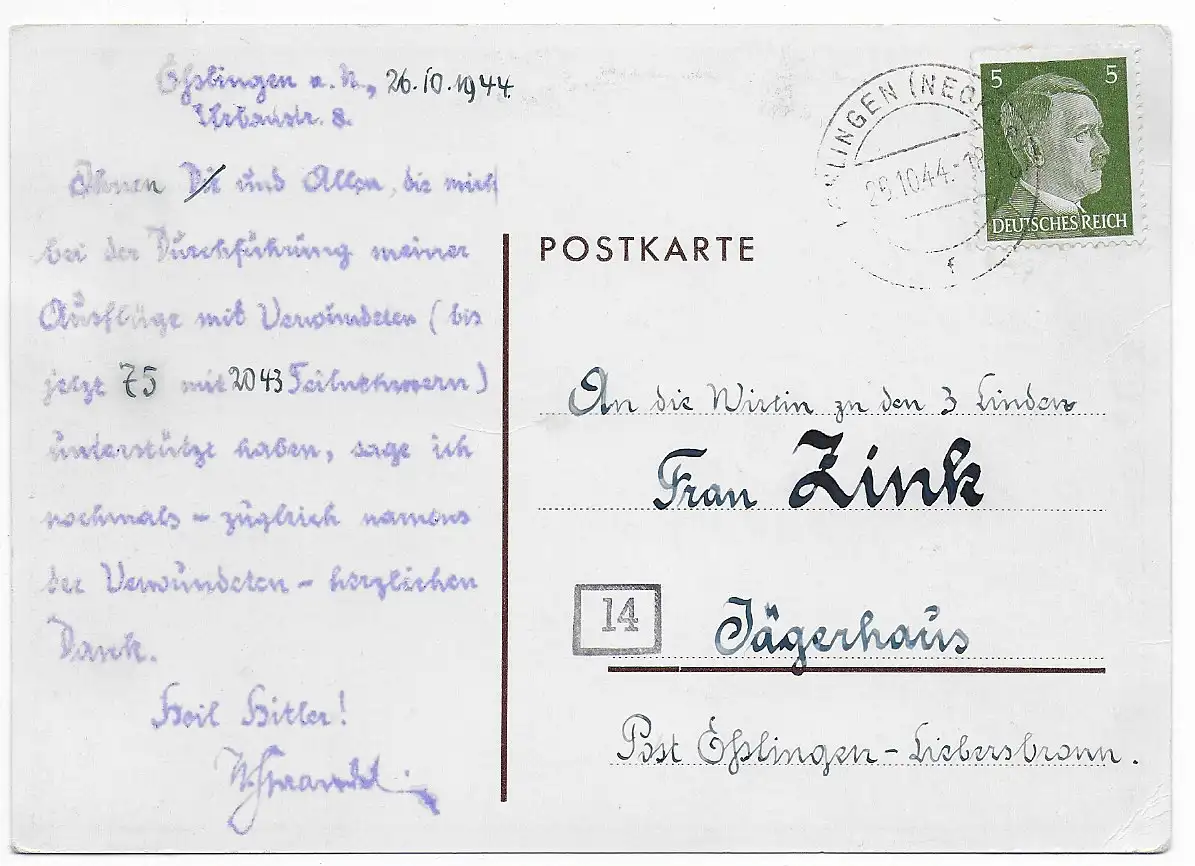 Eßlingen a. N., 26.10.1944.
Urbanstr. 8.
Ihnen Die und Allen, die mich
bei der Durchführung meiner
Ausflüge mit Verwundeten (bis
jetzt 75 mit 2043 Teilnehmern)
unterstützt haben, sage ich
nochmals – zugleich namens
der Verwundeten – herzlichen
Dank.
Heil Hitler!
POSTKARTE
LINGEN (NECK
26.10.44.-18
f
5 5
DEUTSCHES REICH
An die Wirtin zu den 3 Linden
Frau Zink
14
Jägerhaus
Post Eßlingen – Liebersbronn.